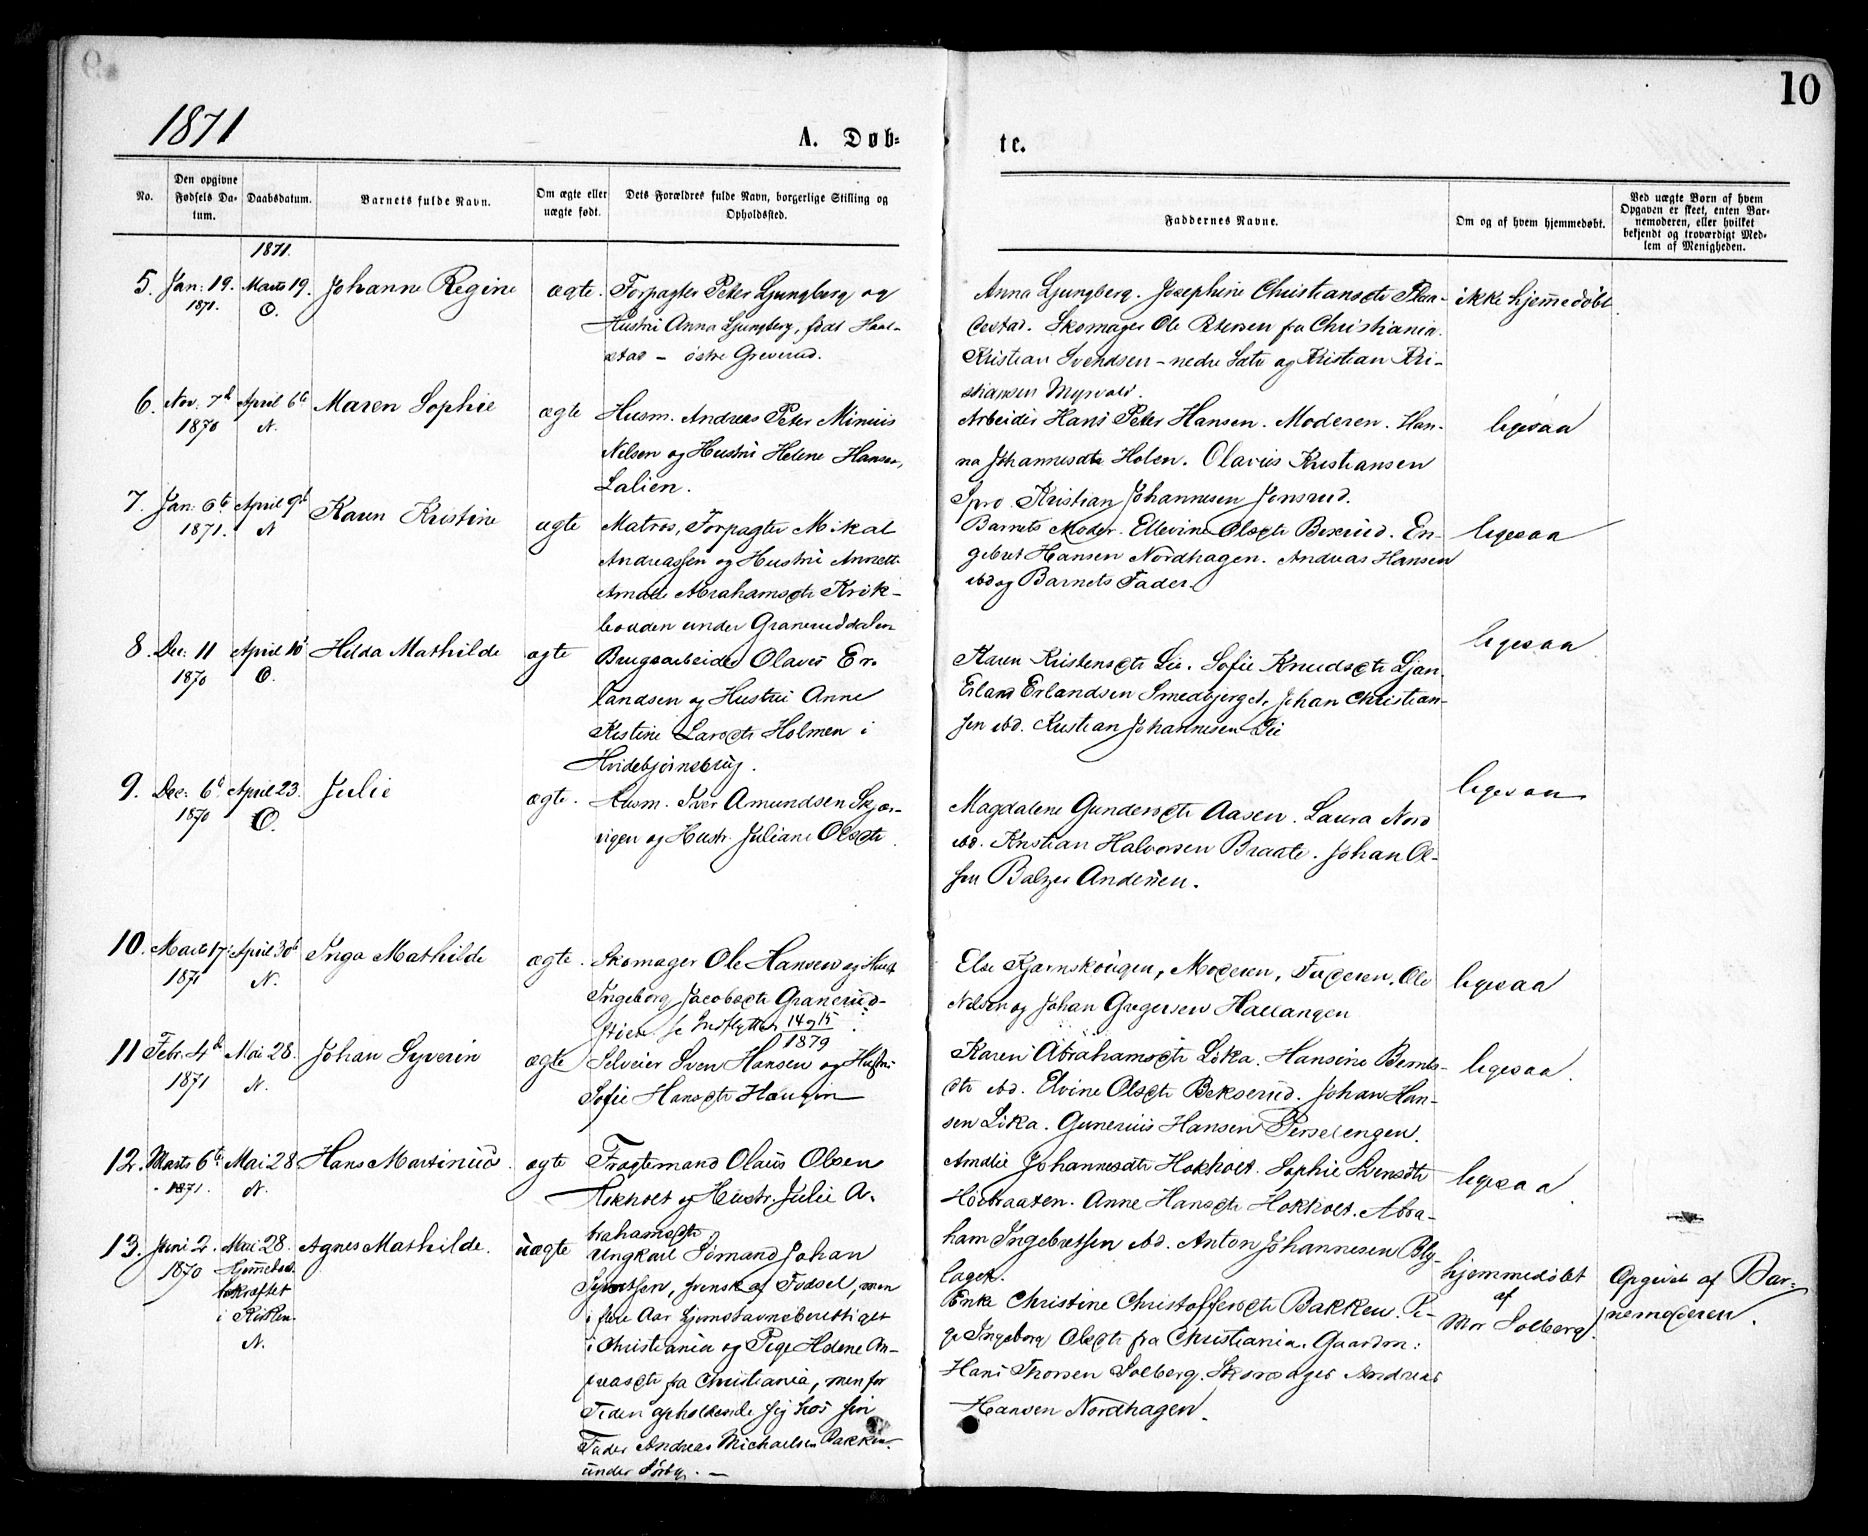 10
1871
A. Døb-
te.
No.
Den opgivne Fødsels Datum.
Daabsdatum.
Barnets fulde Navn.
Om ægte eller uægte født.
Dets Forældres fulde Navn, borgerlige Stilling og Opholdssted.
Faddernes Navne.
Om og af hvem hjemmedøbt.
Ved uægte Børn af hvem Opgaven er skeet, enten Barnemoderen, eller hvilket bekjendt og troværdigt Medlem af Menigheden.
1871.
5. Jan: 19. Marts 19. Johanne Regine ægte. Forpagter Peter Ljungberg og
1871. O.
Hustru Anna Ljungberg, født
stad - østre Greverud.
Anna Ljungberg. Josephine Christiansdtr
Skomager Ole Petersen fra Christiania.
Kristian Svendsen - nedre Sætr og Kristian Kri-
stiansen Myrvold.
ikke hjemmedøbt
6. Nov. 7d April 6te Maren Sophie ægte Husm. Andreas Peter Minius
1870 N.
Nilsen og Hustru Helene Hansen,
Lalien.
Arbeider Hans Peter Hansen. Moderen. Han-
na Johannesdtr Holen. Olavus Kristiansen
Spro. Kristian Johannesen Jonsrud.
ligesaa
7. Jan: 6te April 9d Karen Kristine ægte Matros, Forpagter Mikal
1871. N
Andreassen og Hustru Annette
Amalie Abrahamsdtr Krok-
bonden under Graneruddalen
Barnets Moder. Ellevine Olsdtr Bexrud. En-
gebret Hansen Nordhagen. Andreas Hansen
ibd og Barnets Fader.
ligesaa
8. Dec: 11 April 10 Hilda Mathilde ægte Brugsarbeider Olavus Er-
1870 O.
landsen og Hustru Anne
Kistine Larsdtr Holmen i
Hvidebjørnsbrug.
Karen Kristensdtr Lie. Sofie Knudsdtr Ljan.
Erland Erlandsen Smedbjerget. Johan Christian-
sen ibd. Kristian Johannesen Lie
ligesaa
9. Dec: 6te April 23. Julie ægte. Husm. Iver Amundsen Skjær-
1870 O.
vigen og Hustr. Juliane Olsdtr
Magdalene Gundersdtr Aasen. Laura Nord
ibd. Kristian Halvorsen Braate. Johan Ol-
sen Balzer Andersen.
ligesaa
10. Marts 17. April 30te Inga Mathilde ægte. Skomager Ole Hansen og Hust.
1871 N.
Ingeborg Jacobsdtr Granerud-
stien. se Indflyttede 14 og 15
1879
Else Kjærnskougen, Moderen, Faderen. Ole
Nilsen og Johan Gregersen Hallangen
ligesaa
11 Febr. 4d Mai 28. Johan Syverin ægte Selveier Sven Hansen og Hustru
1871 N.
Sofie Hansdtr Haugen
Karen Abrahamsdtr Løka. Hansine Bernts-
dtr ibd. Elvine Olsdtr Bekserud. Johan Han-
sen Løka. Gunerius Hansen
ligesaa.
12. Marts 6te Mai 28 Hans Martinius ægte Fragtemand Olaus Olsen
1871. N.
Hokholt og Hustr. Julie A-
brahamsdtr.
Amalie Johannesdtr Hokholt. Sophie Svensdtr
Høibraaten. Anne Hansdtr Hokholt. Abra-
ham Ingebretsen ibd. Anton Johannesen Bly-
laget.
ligesaa
13. Juni 2. Mai 28. Agnes Mathilde. uægte Ungkarl Sømand Johan
1870 Hjemmedaab
bekræftet
i Kirken
N.
svensk af Fødsel, men
i flere Aar hjemstavnsberettiget
i Christiania og Pige Helene An-
dreasdtr fra Christiania, men for
Tiden opholdende sig hos sin
Fader Andreas Michaelsen Bakken
under Sørby. -
Enke Christine Christoffersdtr Bakken. Pi-
ge Ingeborg Olsdtr fra Christiania. Gaardm:
Hans Thorsen Solberg. Skomager Andreas
Hansen Nordhagen.
hjemmedøbt
af
Mor Solberg.
Opgivet af Bar-
nemoderen.